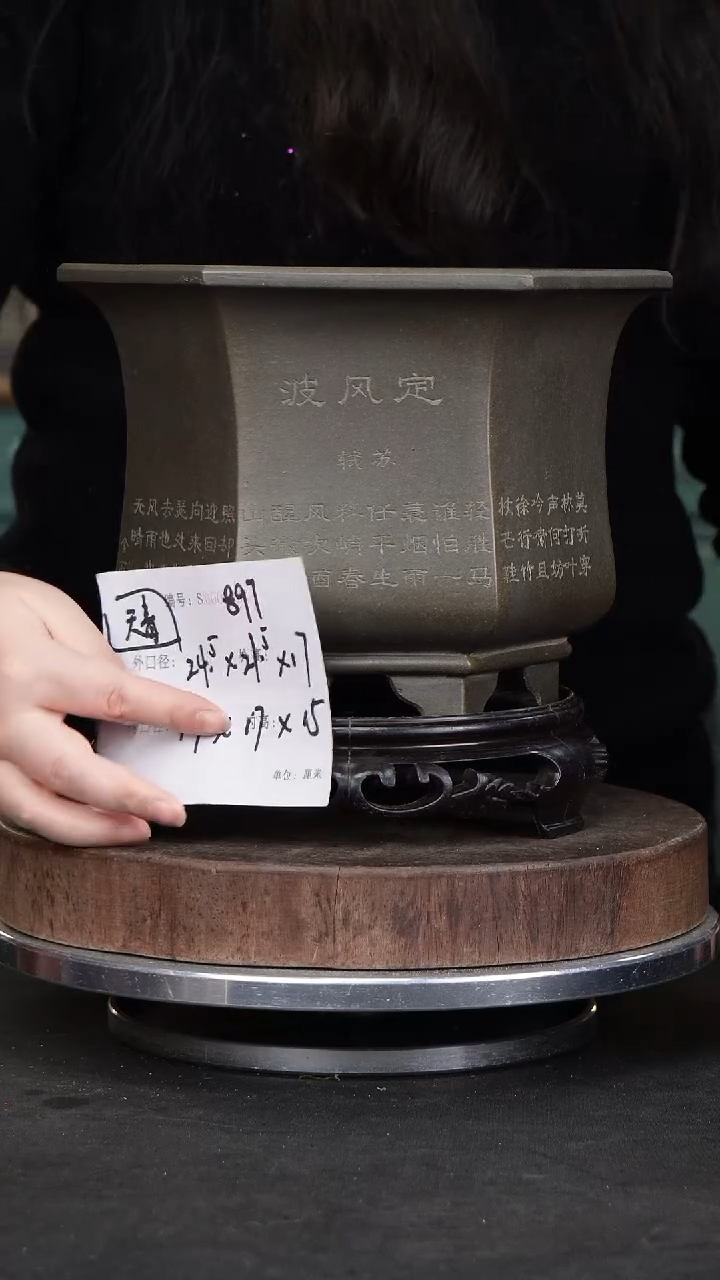 定风波
苏轼
莫听穿
林打叶
声何妨
吟啸且
徐行竹
杖芒鞋
轻胜马
谁怕一
蓑烟雨
任平生
料峭春
风吹酒
醒
山头
照却
迎回
向来
瑟处
去也
风雨
无晴
编号：S 897
天青
外口径：24.5×21.5×17
17×15
单位：厘米